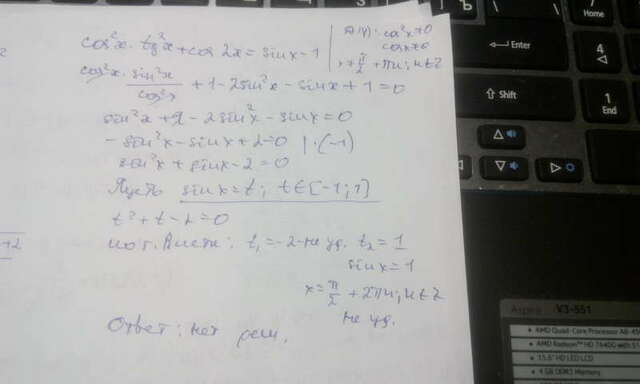 cos²x · tg²x + cos 2x = sin x - 1
Д(У): cos²x ≠ 0
cos x ≠ 0
x ≠ π/2 + πn; n ∈ Z
cos²x · sin²x/cos²x + 1 - 2sin²x - sin x + 1 = 0
sin²x + 2 - 2sin²x - sin x = 0
- sin²x - sin x + 2 = 0 | · (-1)
sin²x + sin x - 2 = 0
Пусть sin x = t; t ∈ [-1; 1]
t² + t - 2 = 0
по т. Виета: t₁ = -2 - не уд. t₂ = 1
sin x = 1
x = π/2 + 2πn; n ∈ Z
не уд.
Ответ: нет реш.
+2
7
Home
Enter
4
Shift
1
End
Aspire V3-551
AMD Quad-Core Processor A8-45
AMD Radeon™ HD 7640G with 51
15.6" HD LED LCD
4 GB DDR3 Memory